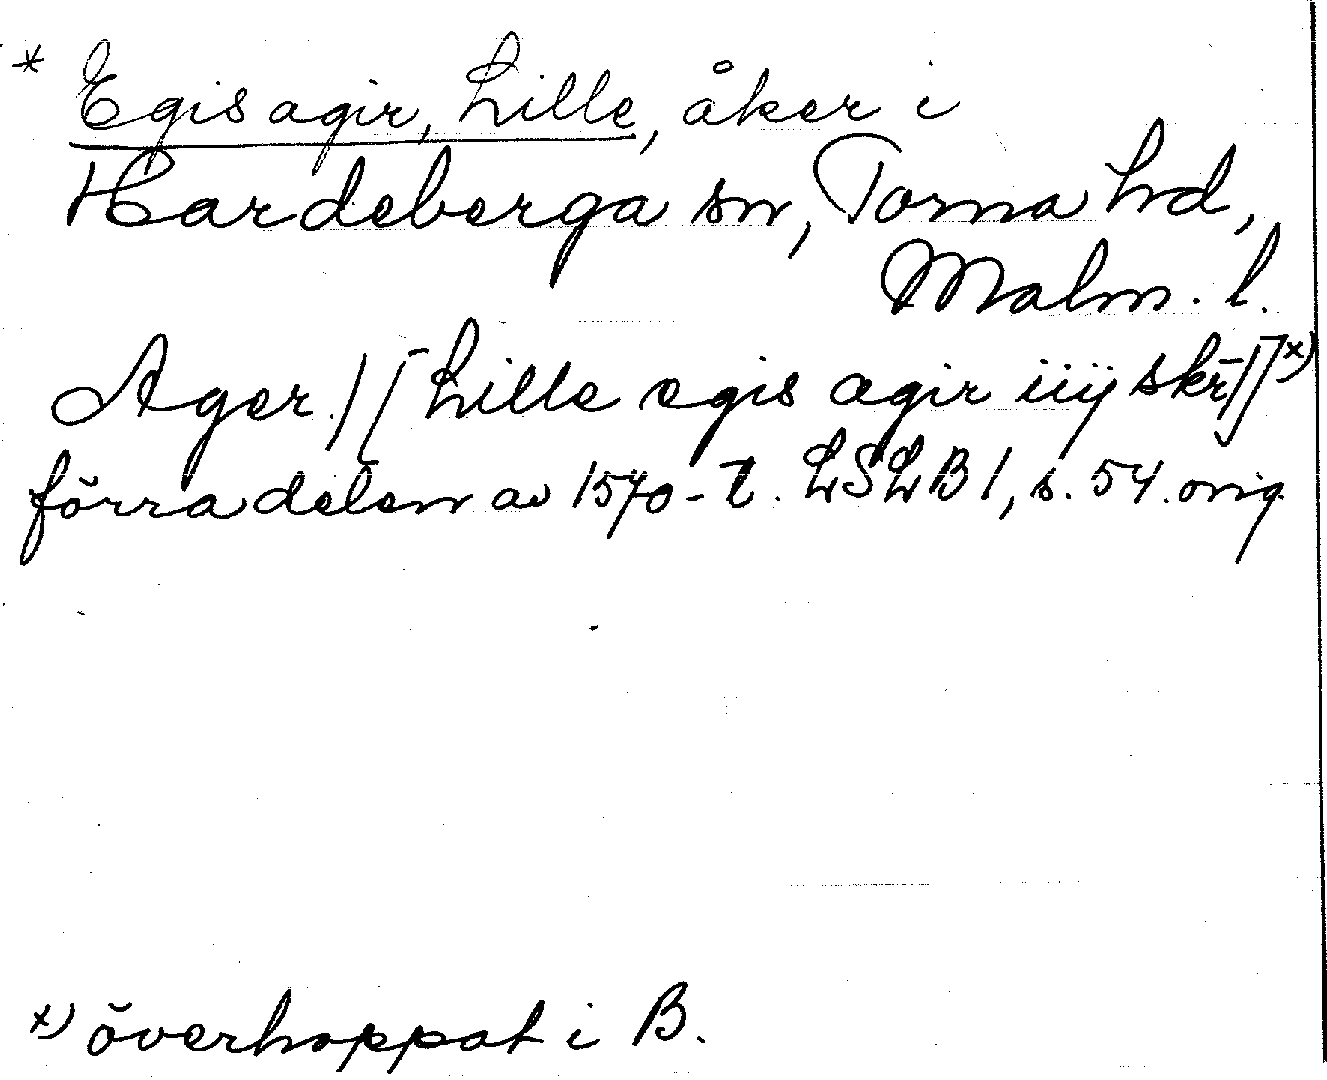 * Egis agir, Lille, åker i
Hardeberga sn, Torna hd,
Malm. l.
Ager / [Lille egis agir iiij skr̄/]x)
förra delen av 1570-t. LSLB 1, s. 54. orig.
x) överhoppat i B.